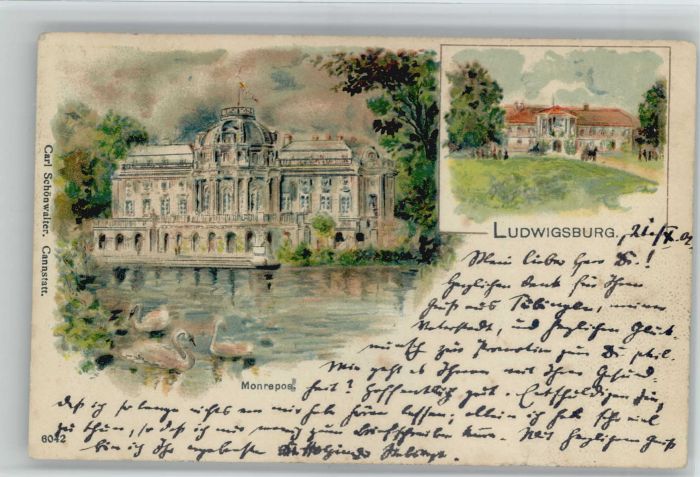 Carl Schönwalter. Cannstatt.
LUDWIGSBURG,
Mein lieber Herr Dr.!
Herzlichen Dank für Ihren
Gruß aus Tübingen, meiner
Vaterstadt, und herzlichen Glück-
wunsch zur Promotion zum Dr. phil.
Wie geht es Ihnen mit Ihrer Gesund-
heit? Hoffentlich gut. Entschuldigen Sie,
Monrepos.
daß ich so lange nichts von mir habe hören lassen; allein ich habe so viel
zu thun, so daß ich nur wenig zum Briefschreiben komme. Mit herzlichem Gruß
bin ich Ihr ergebenster
6042